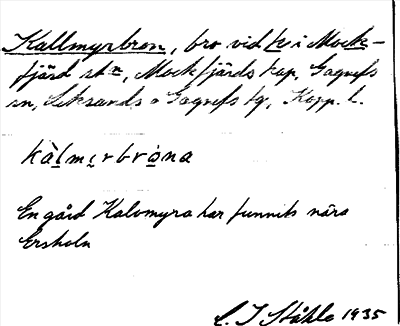 Kallmyrbron, bro vid lv i Mock-
fjärd stn, Mockfjärds kap, Gagnefs
sn, Leksands o Gagnefs tg, Kopp. l.
kàlmɛrbròna
En gård Kalvmyra har funnits nära
Ersholn
C. I Ståhle 1935